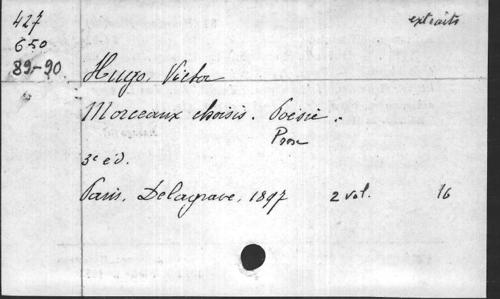 427
650
89-90
extraits
Hugo, Victor
Morceaux choisis. Poésie.
Prose
3e éd.
Paris, Delagrave, 1897 2 vol. 16